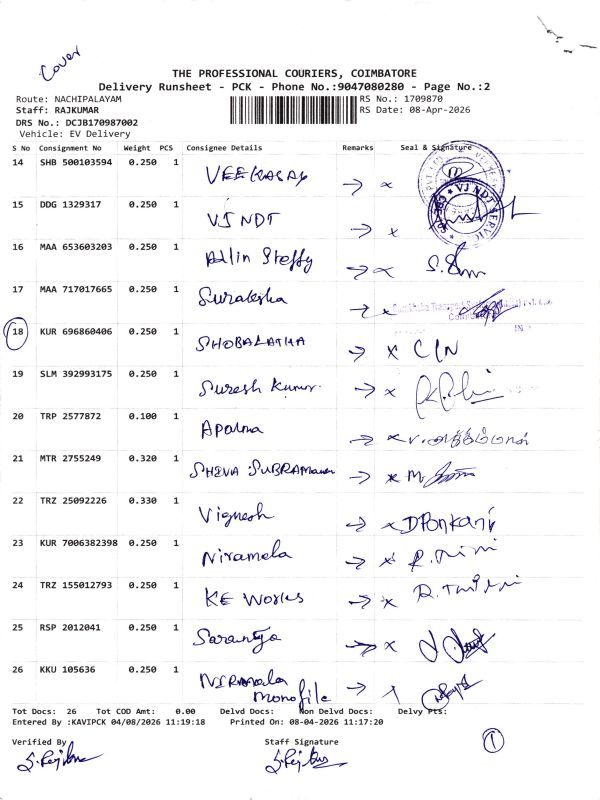 Cover
THE PROFESSIONAL COURIERS, COIMBATORE
Delivery Runsheet - PCK - Phone No.:9047080280 - Page No.:2
Route: NACHIPALAYAM RS No.: 1709870
Staff: RAJKUMAR RS Date: 08-Apr-2026
DRS No.: DCJB170987002
Vehicle: EV Delivery
S No Consignment No Weight PCS Consignee Details Remarks Seal & Signature
14 SHB 500103594 0.250 1 → x
15 DDG 1329317 0.250 1 VJ NDT → x VJ NDT
16 MAA 653603203 0.250 1 Allin Steffy → x
17 MAA 717017665 0.250 1 Suraksha → x
18 KUR 696860406 0.250 1 SHOBALATHA → x C/N
19 SLM 392993175 0.250 1 Suresh Kumar → x
20 TRP 2577872 0.100 1 Aparna → x
21 MTR 2755249 0.320 1 SHIVA SUBRAmanian → x
22 TRZ 25092226 0.330 1 Vignesh → x
23 KUR 7006382398 0.250 1 Niramala → x
24 TRZ 155012793 0.250 1 KE Works → x
25 RSP 2012041 0.250 1 Saranya → x
26 KKU 105636 0.250 1 NIRmala → x
Monofile
Tot Docs: 26 Tot COD Amt: 0.00 Delvd Docs: Non Delvd Docs: Delvy Pts:
Entered By :KAVIPCK 04/08/2026 11:19:18 Printed On: 08-04-2026 11:17:20
Verified By Staff Signature
1